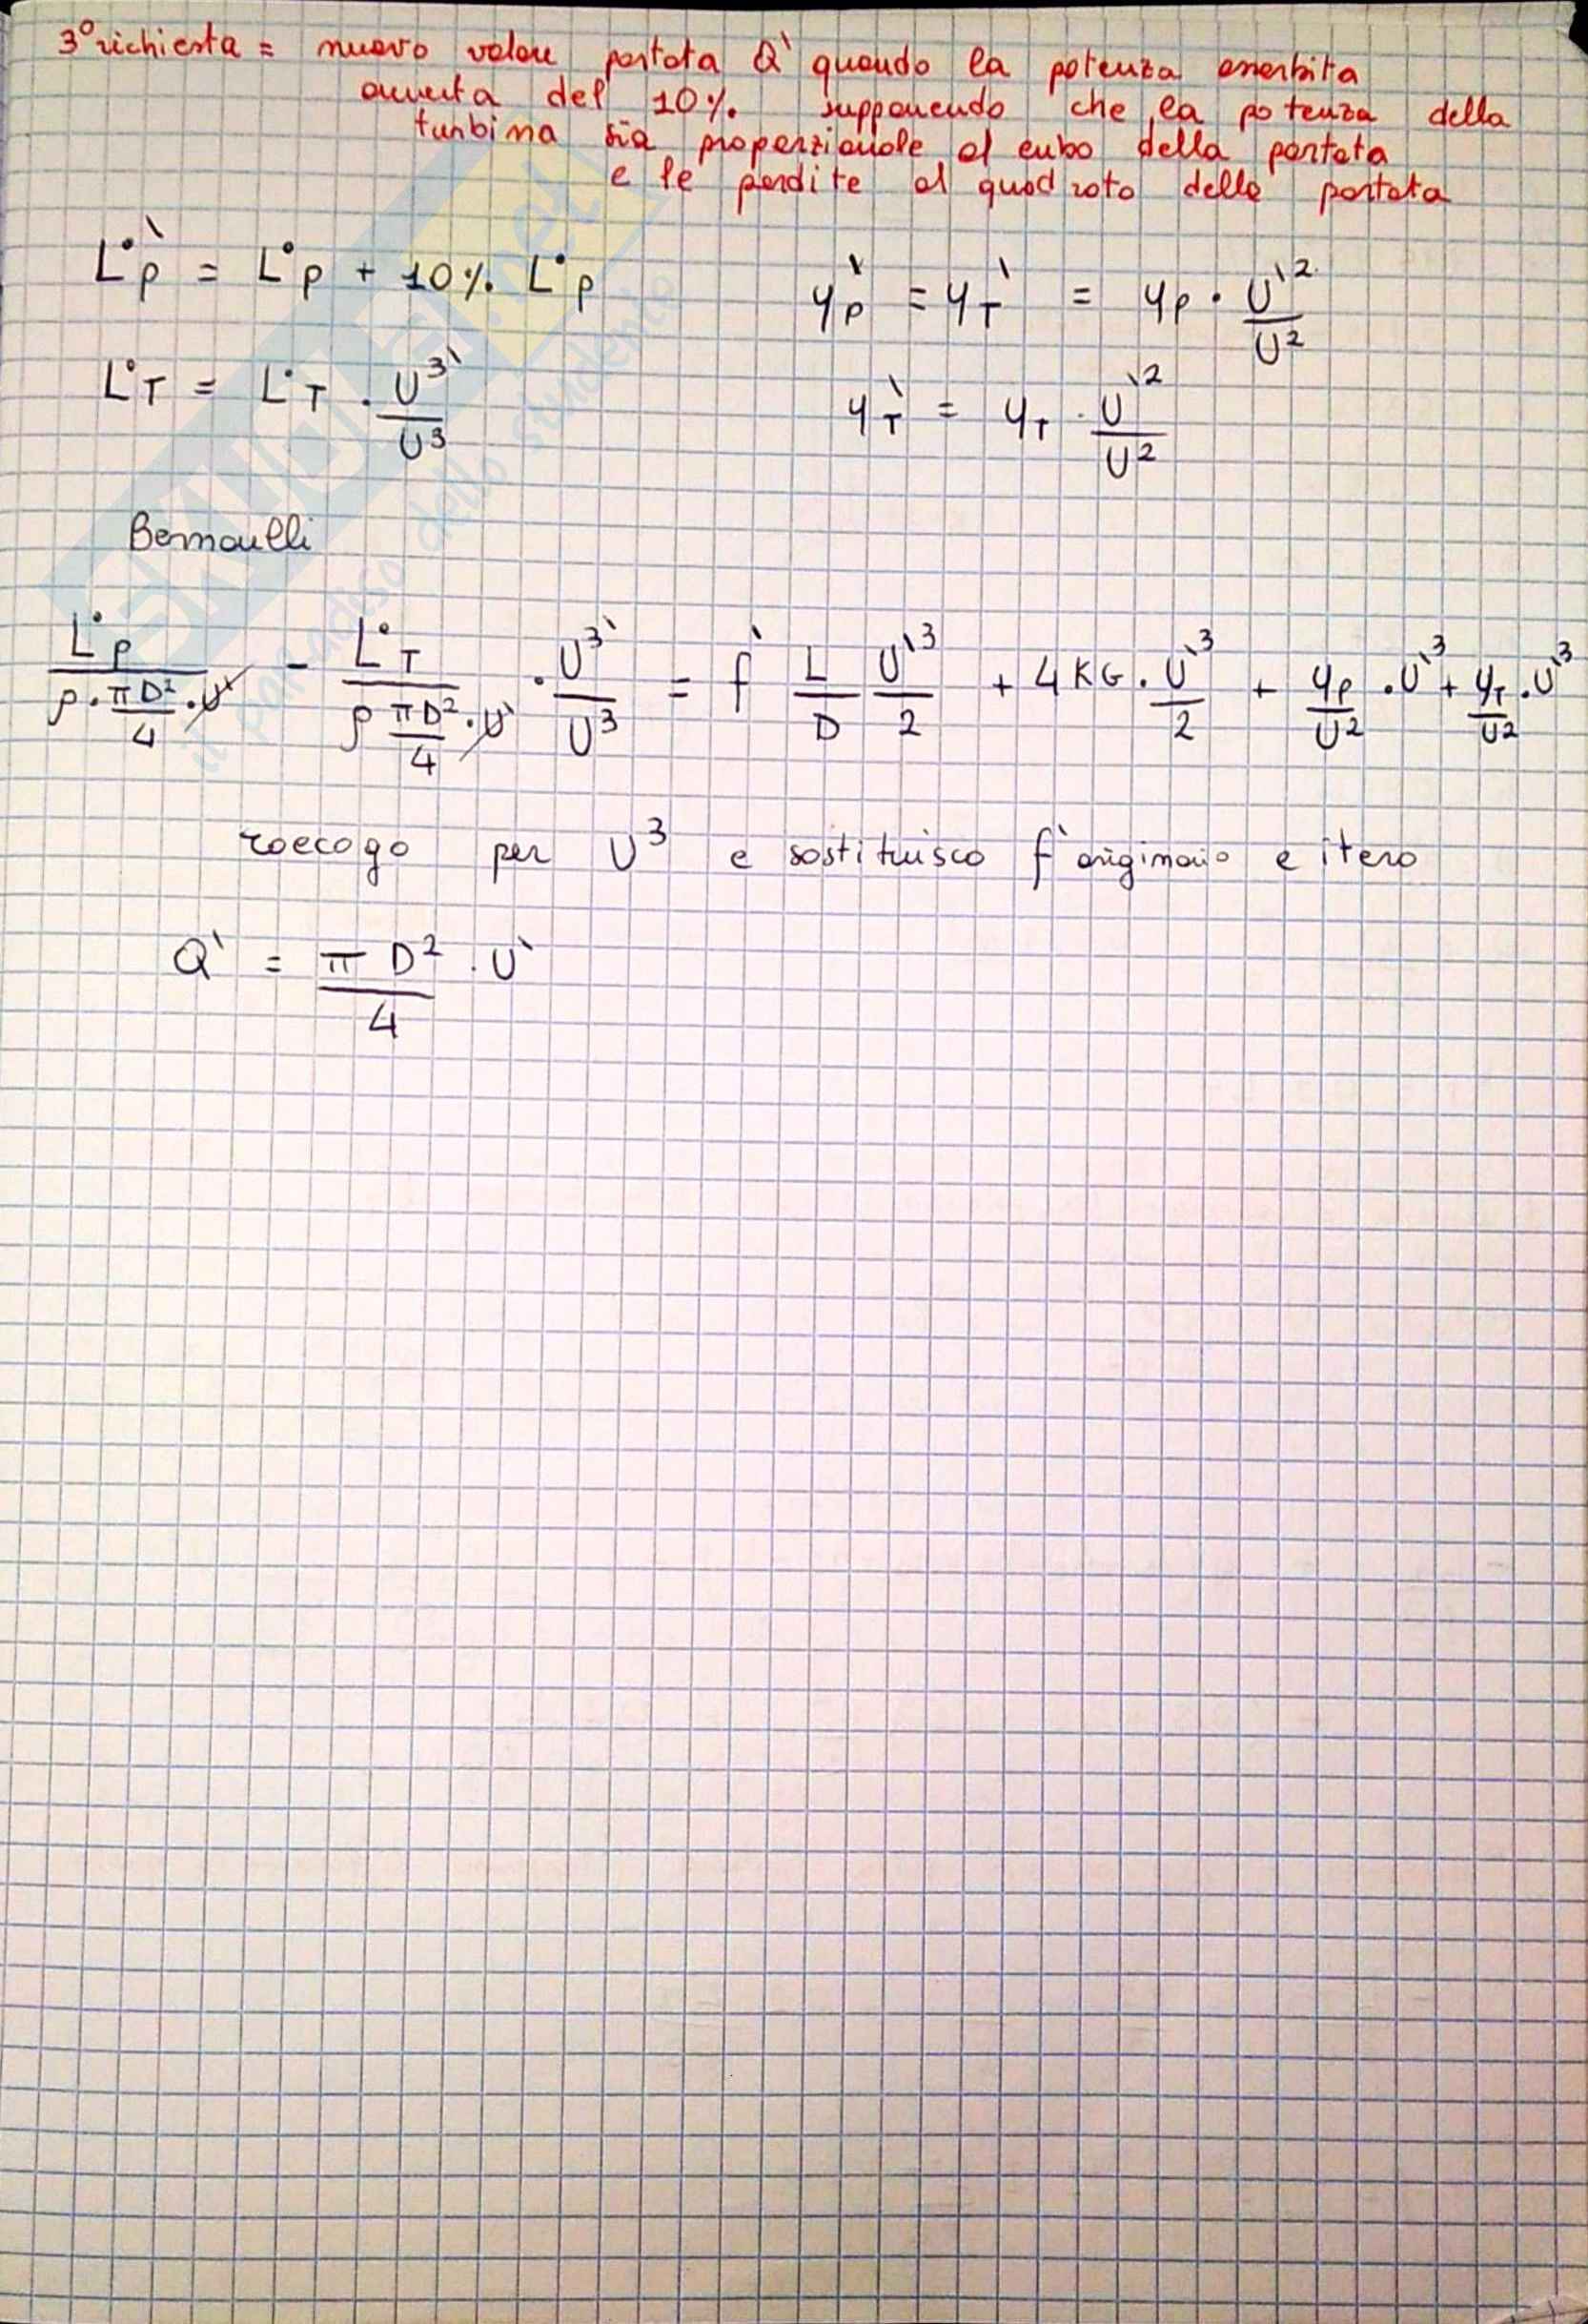 3° richiesta = nuovo valore portata Q' quando la potenza assorbita
aumenta del 10% supponendo che la potenza della
turbina sia proporzionale al cubo della portata
e le perdite al quadrato della portata
L̇p' = L̇p + 10% L̇p
yp' = yT' = yp · U'² / U²
L̇T = L̇T · U³' / U³
yT' = yT · U'² / U²
Bernoulli
L̇p / (ρ · πD²/4 · U') - L̇T / (ρ πD²/4 · U') · U³' / U³ = f' L/D U'³/2 + 4KG · U'³/2 + yp/U² · U'³ + yT/U² · U'³
raccogo per U³ e sostituisco f' originario e itero
Q' = πD²/4 · U'